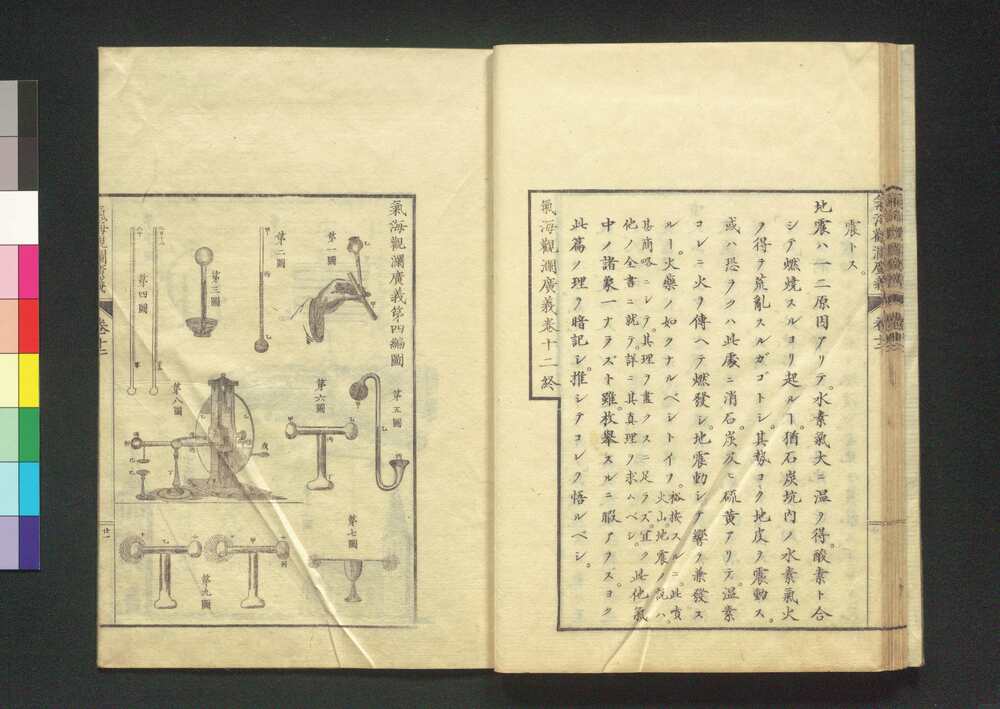 震トス。
地震ハ一二原因アリテ。水素氣大ニ温ヲ得。酸素ト合
シテ燃焼スルヨリ起ルー。猶石炭坑内ノ水素氣火
ヲ得テ荒亂スルガゴトシ。其勢ヨク地皮ヲ震動ス。
或ハ恐ラクハ此處ニ消石炭及ヒ硫黄アリテ。温素
コレニ火ヲ傳ヘテ燃發シ。地震動シテ響ヲ兼發ス
ルー。火藥ノ如クナルベシトイフ。
裕按スルニ。此貢
火山地震ノ説ハ。
甚商略ニシテ。其理ヲ盡クスニ足ラズ。宜ク此他氣
他ノ全書ニ就テ。詳ニ其真理ヲ求ムベシ。
中ノ諸象一ナラズト雖。枚舉スルニ暇アラス。ヨク
此篇ノ理ヲ暗記シ。推シテコレヲ悟ルベシ。
氣海觀瀾廣義卷十二終
氣海觀瀾廣義
卷十二
氣海觀瀾廣義第四編圖
第一圖
第二圖
第三圖
第四圖
第五圖
第六圖
第七圖
第八圖
第九圖
氣海觀瀾廣義
卷十二